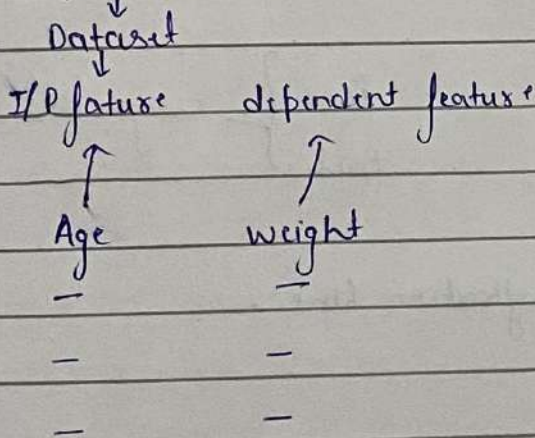 ↓
Dataset
↓
I/P fature dependent feature
↑ ↑
Age weight
– –
– –
– –